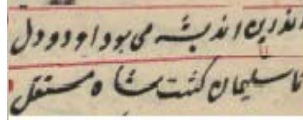 اندرین اندیشه می بود او دو دل
تا سلیمان گشت شاه مستقل